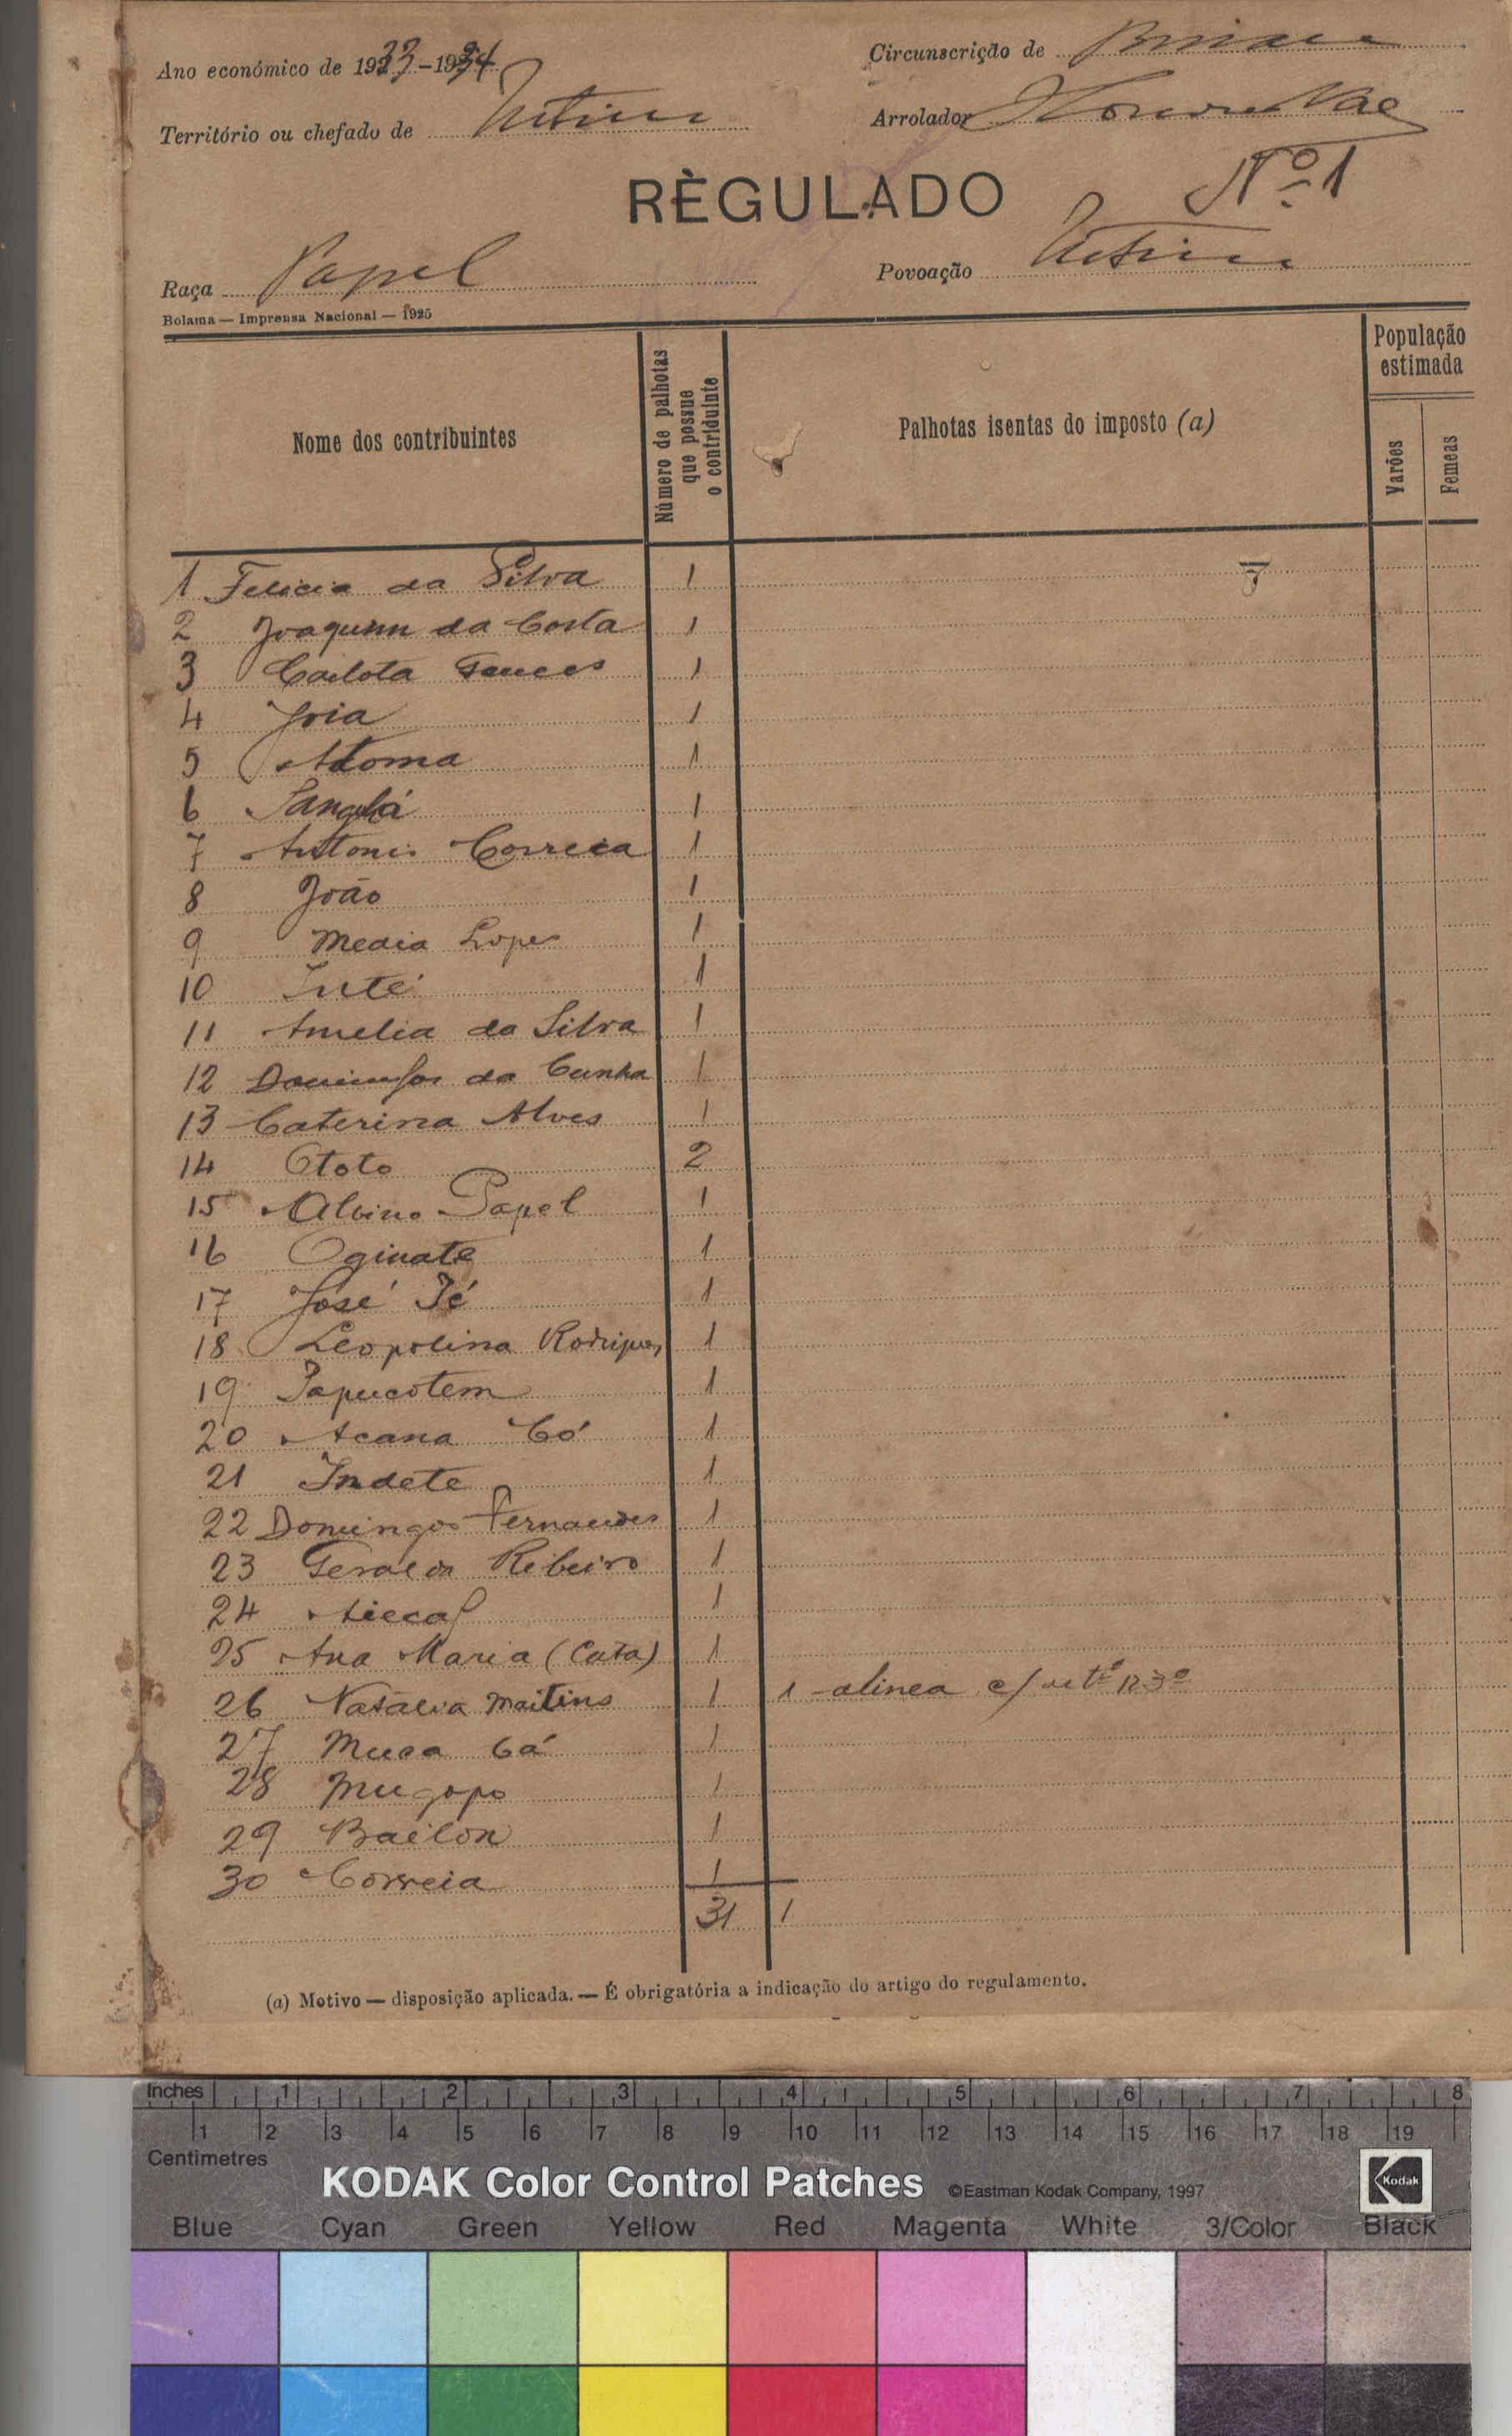 Ano económico de 1933-1934
Circunscrição de
Território ou chefado de
Arrolador
RÈGULADO
Nº 1
Raça Papel
Povoação
Bolama — Imprensa Nacional — 1925
Nome dos contribuintes
Número de palhotas que possue o contriduinte
Palhotas isentas do imposto (a)
População estimada
Varões
Femeas
1 Felicia da Silva 1
2 Joaquim da Costa 1
3 Carlota 1
4 Joia 1
5 1
6 1
7 Antonio Correea 1
8 João 1
9 Media Lopes 1
10 Iuté 1
11 Amelia da Silva 1
12 Domingos da Cunha 1
13 Caterina Alves 1
14 Ototo 2
15 Albino Papel 1
16 Oginate 1
17 José Té 1
18 Leopolina Rodrigues 1
19 Papucotem 1
20 Acana Có 1
21 Indete 1
22 Domingos Fernandes 1
23 Geralda Ribeiro 1
24 1
25 Ana Maria (Cata) 1
26 Natalia Martins 1 1 alinea c/ artº 123º
27 Cá 1
28 Mugopo 1
29 Bailon 1
30 Correia 1
31 1
(a) Motivo — disposição aplicada. — É obrigatória a indicação do artigo do regulamento.
Inches 1 2 3 4 5 6 7 8
1 2 3 4 5 6 7 8 9 10 11 12 13 14 15 16 17 18 19
Centimetres
KODAK Color Control Patches ©Eastman Kodak Company, 1997 Kodak
Blue Cyan Green Yellow Red Magenta White 3/Color Black